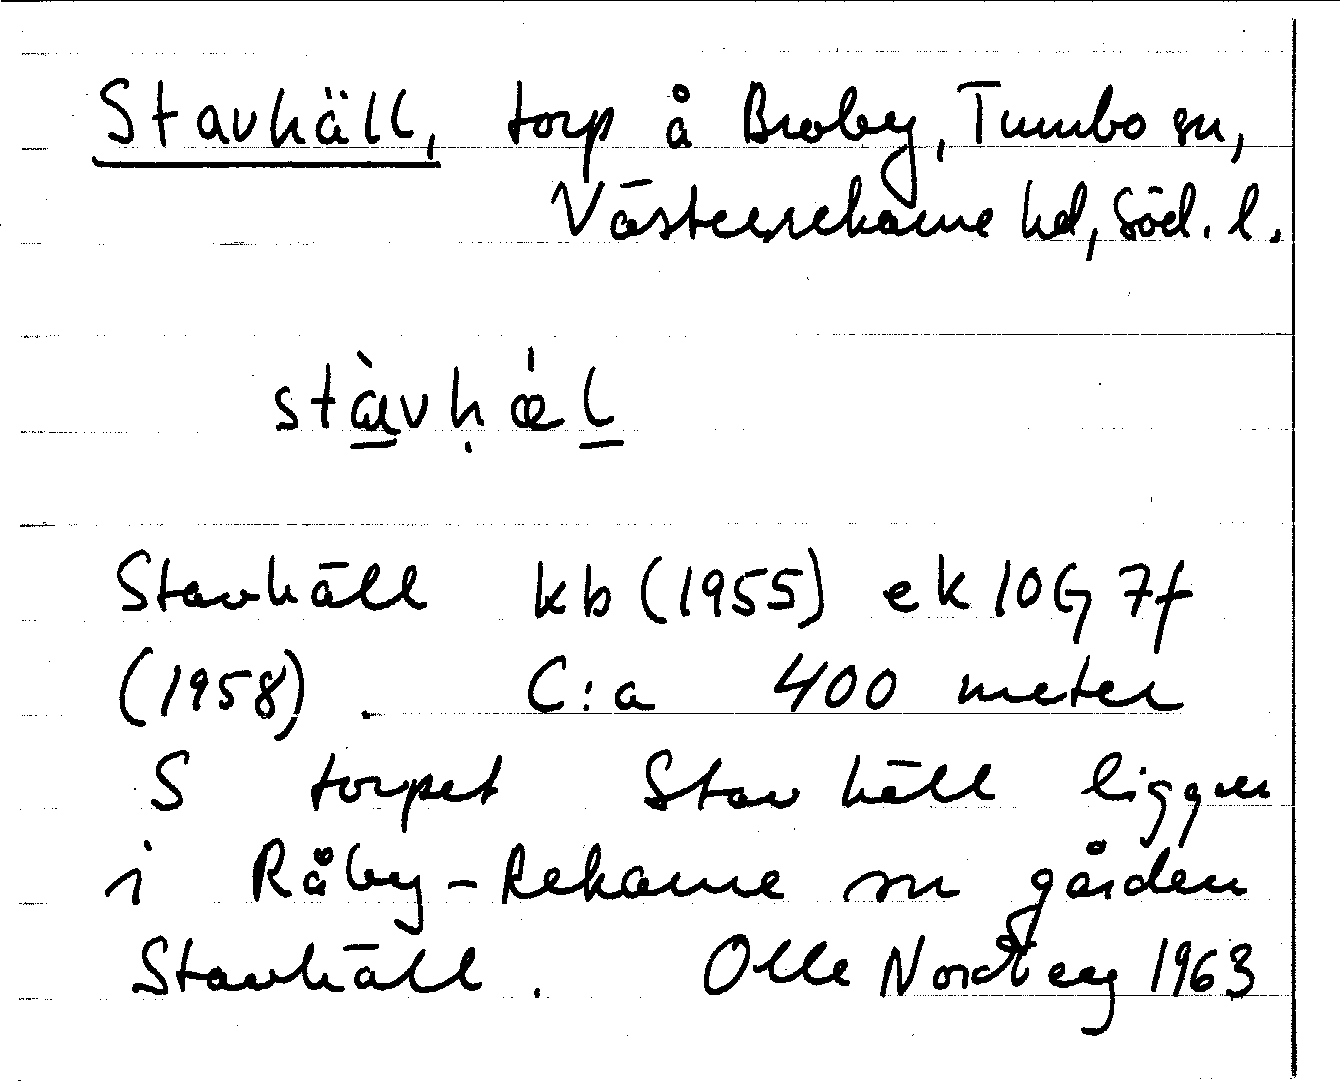 Stavhäll, torp å Broby, Tumbo sn,
Västerrekarne hd, Söd. l.
stàvḥǽl
Stavhäll kb (1955) ek 10G 7f
(1958). C:a 400 meter
S torpet Stavhäll ligger
i Råby-Rekarne sn gården
Stavhäll. Olle Nordberg 1963